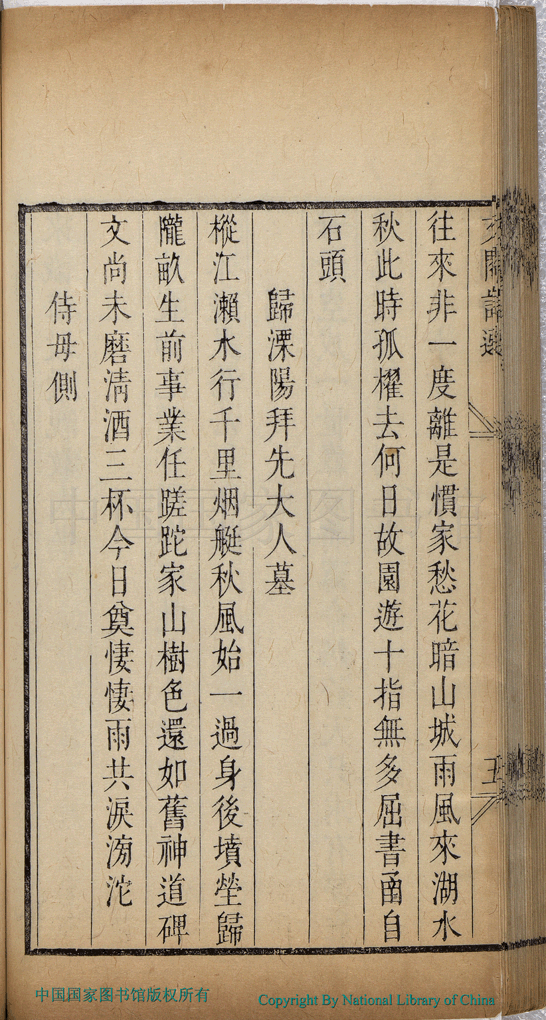 往來非一度離是慣家愁花暗山城雨風來湖水
秋此時孤櫂去何日故園遊十指無多屈書甬自
石頭
歸溧陽拜先大人墓
樅江瀨水行千里烟艇秋風始一過身後墳塋歸
隴畝生前事業任蹉跎家山樹色還如舊神道碑
文尚未磨清酒三杯今日奠悽悽雨共淚滂沱
侍母側
中国国家图书馆版权所有
Copyright By National Library of China